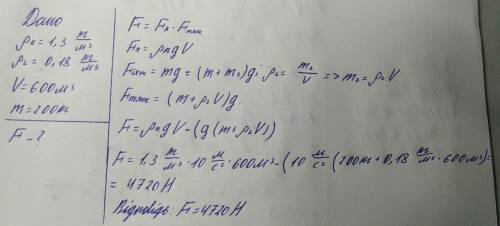 Дано
ρп = 1,3 m/м³
ρг = 0,18 m/м³
V = 600 м³
m = 200 кг
F₁ - ?
F₁ = Fп - Fтяж
Fп = ρп g V
Fтяж = mg = (m + mг)g; ρг = mг/V => mг = ρг V
Fтяж = (m + ρг V)g.
F₁ = ρп g V - (g(m + ρг V))
F₁ = 1,3 m/м³ · 10 м/с² · 600 м³ - (10 м/с² (200 кг + 0,18 m/м³ · 600 м³) =
= 4720 Н
Відповідь: F₁ = 4720 Н